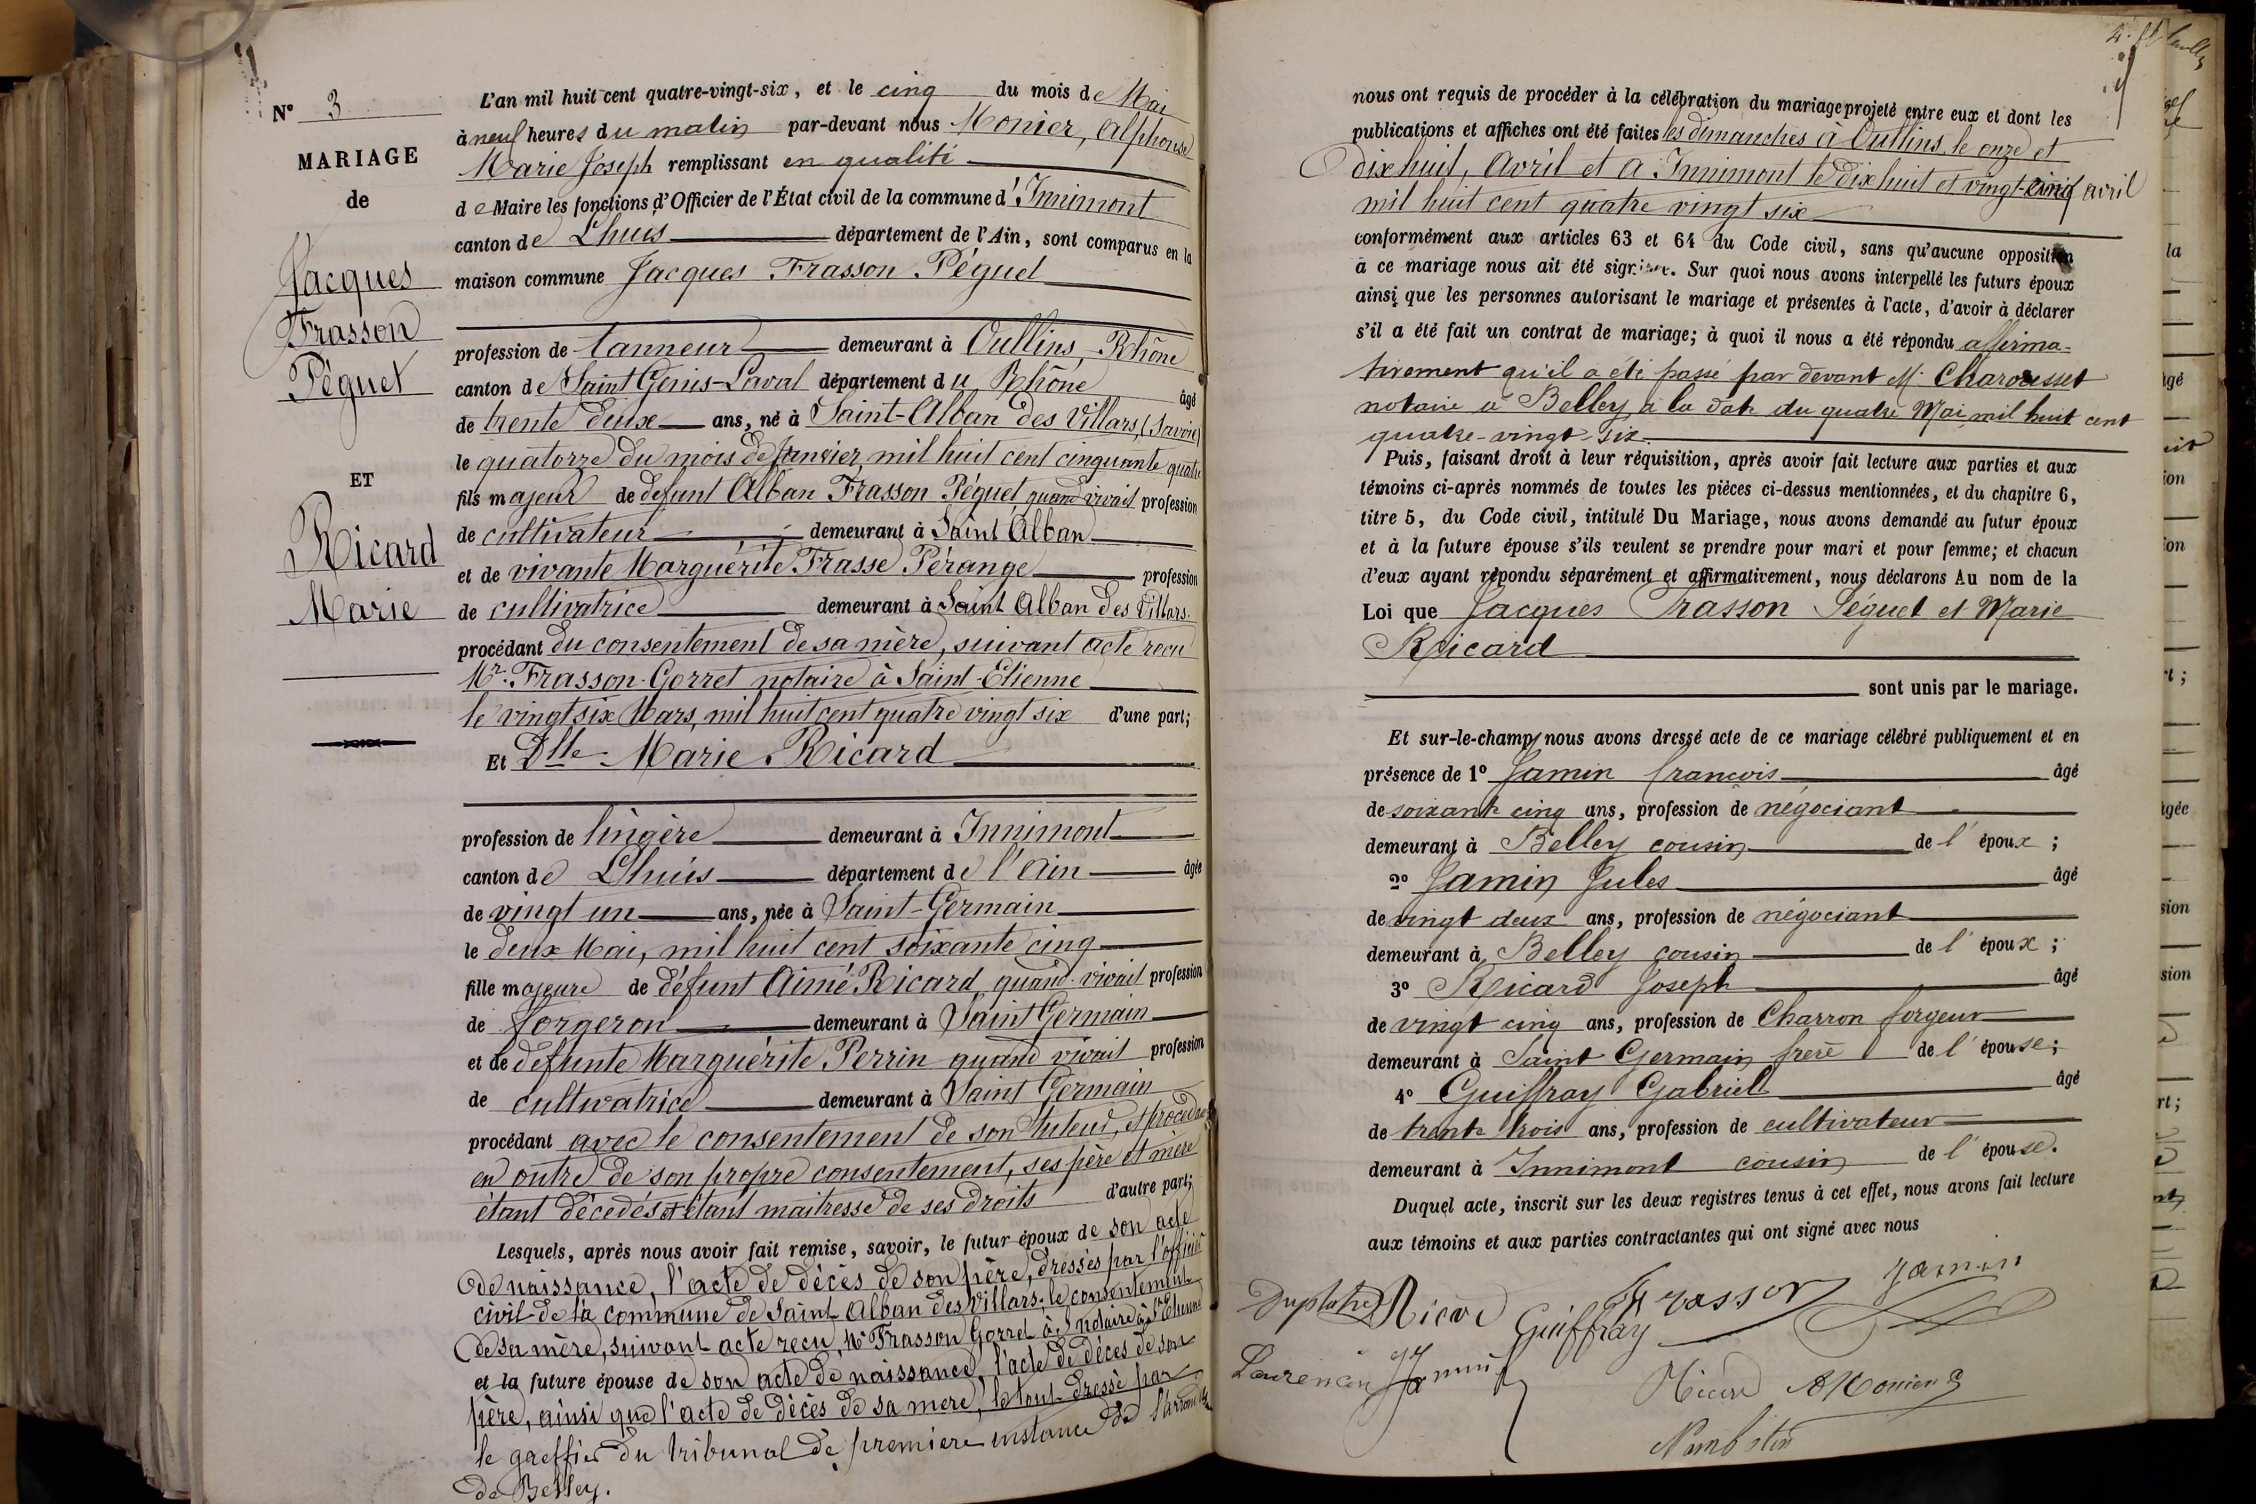 N° 3
MARIAGE
de
Jacques
Frasson
Péguet
ET
Ricard
Marie
L'an mil huit cent quatre-vingt-six, et le cinq du mois de Mai
à neuf heures du matin par-devant nous Monier, Alphonse
Marie Joseph remplissant en qualité
de Maire les fonctions d'Officier de l'État civil de la commune d'Innimont
canton de Lhuis département de l'Ain, sont comparus en la
maison commune Jacques Frasson Péguet
profession de tanneur demeurant à Oullins, Rhône
canton de Saint Genis-Laval département du Rhône âgé
de trente deux ans, né à Saint-Alban des Villars, (Savoie)
le quatorze du mois de Janvier mil huit cent cinquante quatre
fils majeur de défunt Alban Frasson Péguet quand vivait profession
de cultivateur demeurant à Saint Alban
et de vivante Marguérite Frasse Pérange profession
de cultivatrice demeurant à Saint Alban des Villars.
procédant du consentement de sa mère, suivant acte reçu
Mr. Frasson-Gorret notaire à Saint-Etienne
le vingt six Mars, mil huit cent quatre vingt six d'une part;
Et Dlle Marie Ricard
profession de lingère demeurant à Innimont
canton de Lhuis département de l'Ain âgée
de vingt un ans, née à Saint-Germain
le deux Mai, mil huit cent soixante cinq
fille majeure de défunt Aimé Ricard quand vivait profession
de forgeron demeurant à Saint Germain
et de défunte Marguérite Perrin quand vivait profession
de cultivatrice demeurant à Saint Germain
procédant avec le consentement de son tuteur, et procédant
en outre de son propre consentement, ses père et mère
étant décédés et étant maitresse de ses droits d'autre part;
Lesquels, après nous avoir fait remise, savoir, le futur époux de son acte
de naissance, l'acte de décès de son père, dressés par l'officier
civil de la commune de Saint Alban des Villars; le consentement
de sa mère, suivant acte reçu, Mr Frasson Gorret notaire à St Etienne
et la future épouse de son acte de naissance, l'acte de décès de son
père, ainsi que l'acte de décès de sa mère, le tout dressé par
le greffier du tribunal de première instance de l'arrond
de Belley.
nous ont requis de procéder à la célébration du mariage projeté entre eux et dont les
publications et affiches ont été faites les dimanches à Oullins, le onze et
dix huit, Avril et à Innimont le dix huit et vingt-cinq avril
mil huit cent quatre vingt six
conformément aux articles 63 et 64 du Code civil, sans qu'aucune opposition
à ce mariage nous ait été signifiée. Sur quoi nous avons interpellé les futurs époux
ainsi que les personnes autorisant le mariage et présentes à l'acte, d'avoir à déclarer
s'il a été fait un contrat de mariage; à quoi il nous a été répondu affirma-
tivement qu'il a été passé par devant Me Charousset
notaire à Belley à la date du quatre Mai mil huit cent
quatre-vingt-six.
Puis, faisant droit à leur réquisition, après avoir fait lecture aux parties et aux
témoins ci-après nommés de toutes les pièces ci-dessus mentionnées, et du chapitre 6,
titre 5, du Code civil, intitulé Du Mariage, nous avons demandé au futur époux
et à la future épouse s'ils veulent se prendre pour mari et pour femme; et chacun
d'eux ayant répondu séparément et affirmativement, nous déclarons Au nom de la
Loi que Jacques Frasson Péguet et Marie
Ricard
sont unis par le mariage.
Et sur-le-champ nous avons dressé acte de ce mariage célébré publiquement et en
présence de 1° Jamin françois âgé
de soixante cinq ans, profession de négociant
demeurant à Belley cousin de l'époux;
2° Jamin Jules âgé
de vingt deux ans, profession de négociant
demeurant à Belley cousin de l'époux;
3° Ricard Joseph âgé
de vingt cinq ans, profession de Charron forgeur
demeurant à Saint Germain frère de l'épouse;
4° Guiffray Gabriel âgé
de trente trois ans, profession de cultivateur
demeurant à Innimont cousin de l'épouse.
Duquel acte, inscrit sur les deux registres tenus à cet effet, nous avons fait lecture
aux témoins et aux parties contractantes qui ont signé avec nous
Ricard Frasson Jamin
Guiffray
Laurencin Jamin
Ricard A Monier